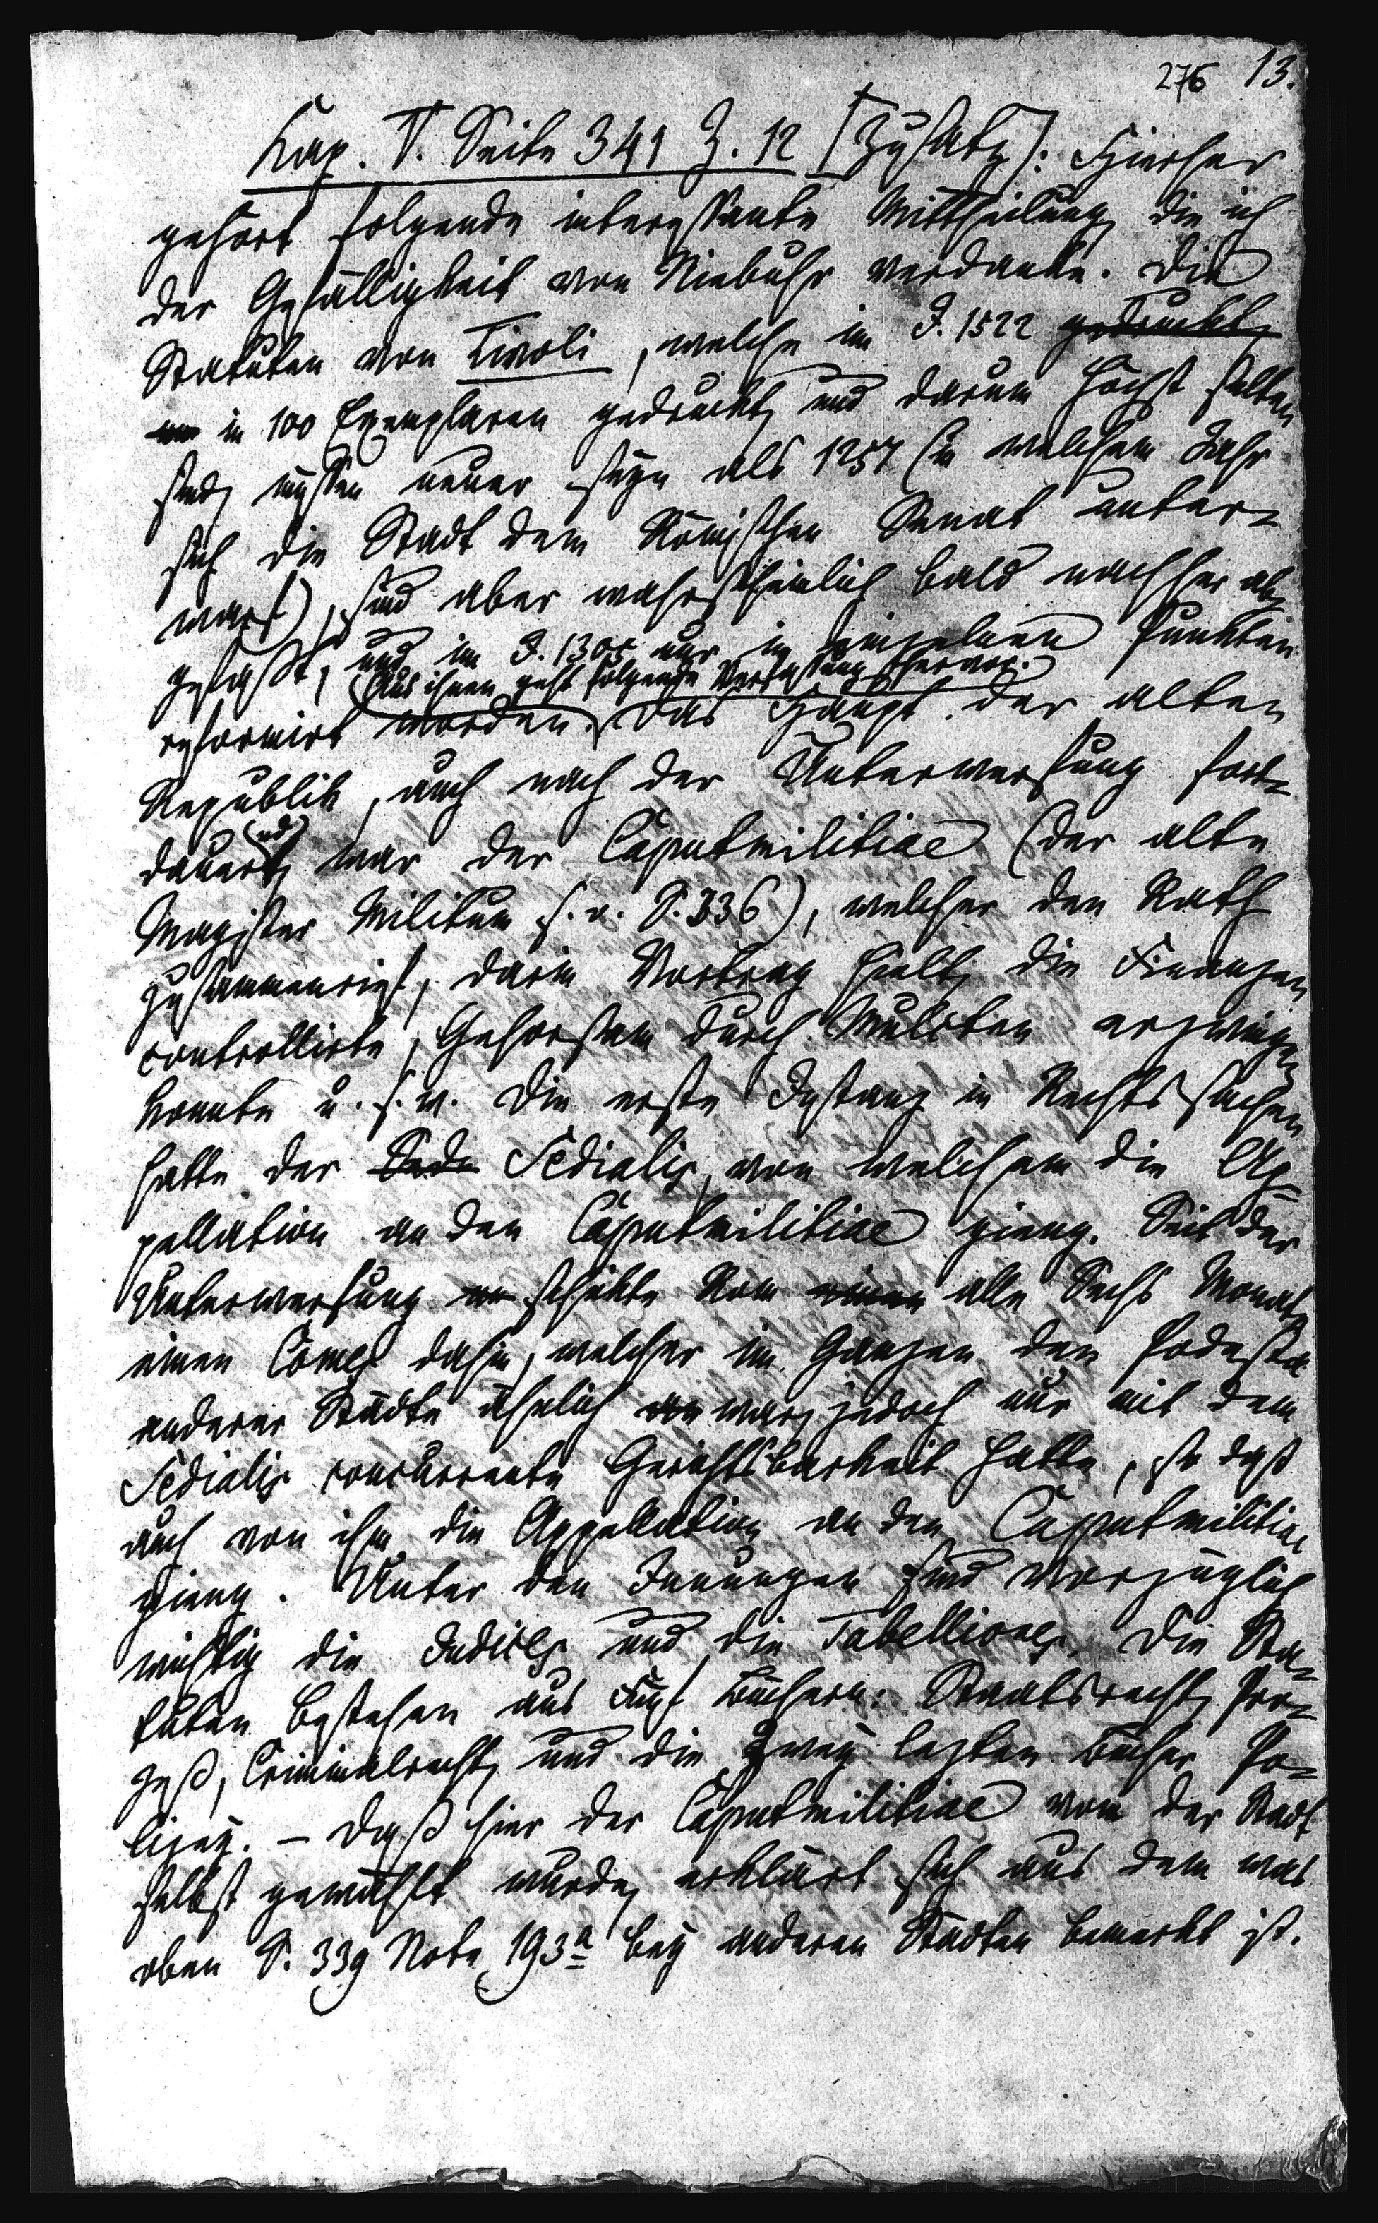 276 13.
Kap. V. Seite 341 Z. 12 [Zusatz]: Hierher
gehört folgende interessante Mittheilung, die ich
der Gefälligkeit von Niebuhr verdanke. Die
Statuten von Tivoli, welche im J. 1522 gedruckt,
in 100 Exemplaren gedruckt, und darum höchst selten
sind, müssen neuer seyn als 1257 (in welchem Jahr
sich die Stadt dem Römischen Senat unter-
warf), sind aber wahrscheinlich bald nachher ab-
gefaßt, und im J. 1305 nur in einzelnen Punkten
Aus ihnen geht folgende Verfassung hervor.
reformirt worden. Das Haupt der alten
Republik, auch nach der Unterwerfung fort-
dauernd, war der Caputmilitiae (der alte
Magister Militum s. o. S. 336), welcher den Rath
zusammenrief, darin Vortrag hielt, die Finanzen
controllirte, Gehorsam durch Mulcten erzwingen
konnte u. s. w. Die erste Instanz in Rechtssachen
hatte der Sede Sedialis, von welchem die Ap-
pellation an den Caputmilitiae gieng. Seit der
Unterwerfung schickte Rom einen alle Sechs Monate
einen Comes dahin, welcher im Ganzen dem Podesta
anderer Städte ähnlich war, jedoch nur mit dem
Sedialis concurrente Gerichtsbarkeit hatte, so daß
auch von ihm die Appellation an den Caputmilitiae
gieng. Unter den Innungen sind vorzüglich
wichtig die Judices und die Tabelliones. Die Sta-
tuten bestehen aus Fünf Büchern: Staatsrecht, Pro-
zeß, Criminalrecht, und die Zwey lezten Bücher Po-
lizey. – Daß hier der Caputmilitiae von der Stadt
selbst gewählt wurde, erklärt sich aus dem was
oben S. 339 Note 193a bey anderen Städten bemerkt ist.